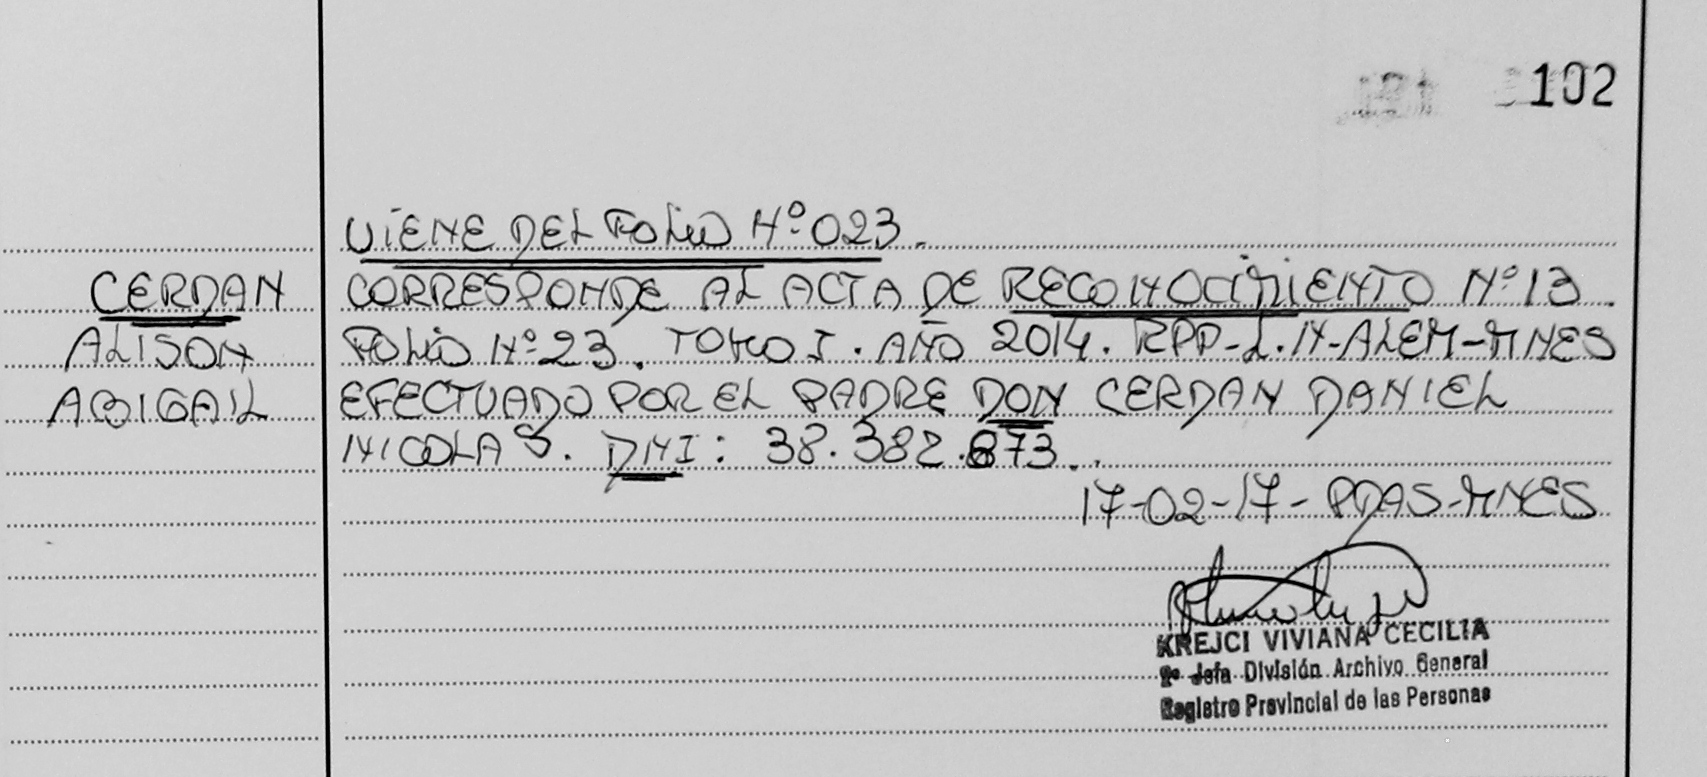 102
VIENE DEL FOLIO Nº 023.
CERDAN
ALISON
ABIGAIL
CORRESPONDE AL ACTA DE RECONOCIMIENTO Nº 13.
FOLIO Nº 23. TOMO I. AÑO 2014. RPP-L.N-ALEM-MNES
EFECTUADO POR EL PADRE DON CERDAN DANIEL
NICOLAS. DNI: 38.382.873..
17-02-17-PDAS-MNES
KREJCI VIVIANA CECILIA
2º Jefa División Archivo General
Registro Provincial de las Personas